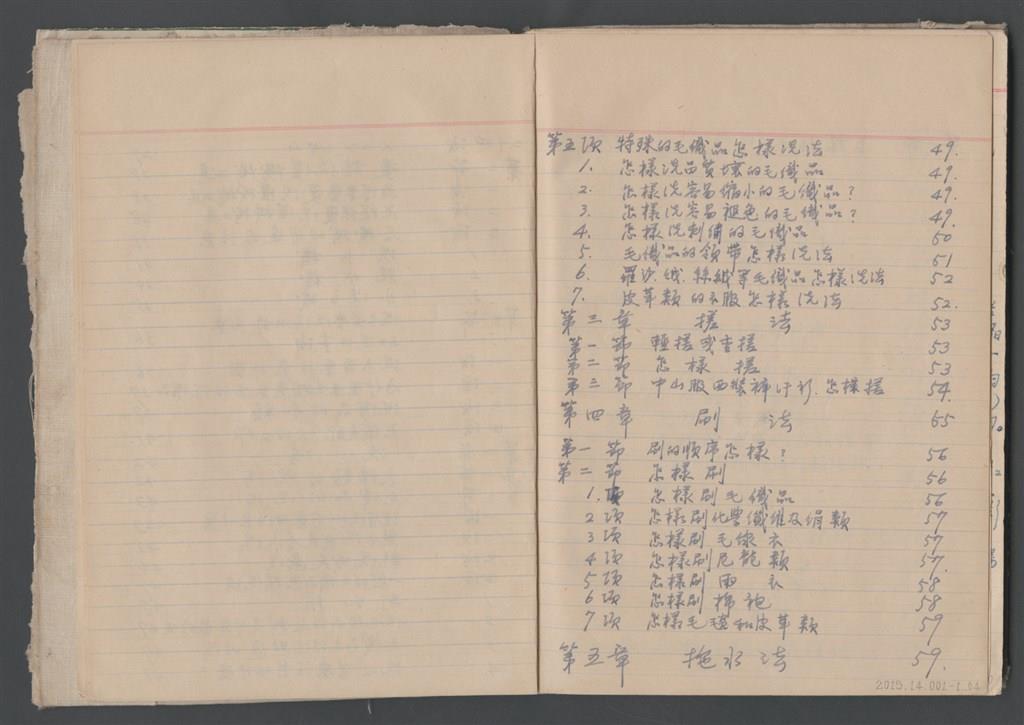 第五項 特殊的毛織品怎樣洗法 49.
1. 怎樣洗品質壞的毛織品 49.
2. 怎樣洗容易縮小的毛織品? 49.
3. 怎樣洗容易褪色的毛織品? 49.
4. 怎樣洗刺繡的毛織品 50
5. 毛織品的領帶怎樣洗法 51
6. 羅沙絨.絲絨等毛織品怎樣洗法 52
7. 皮革類的衣服怎樣洗法 52.
第三章 搓法 53
第一節 輕搓或重搓 53
第二節 怎樣搓 53
第三節 中山服西裝褲汗衫.怎樣搓 54.
第四章 刷法 55
第一節 刷的順序怎樣? 56
第二節 怎樣刷 56
1.項 怎樣刷毛織品 56
2項 怎樣刷化學纖維及絹類 57
3項 怎樣刷毛線衣 57
4項 怎樣刷尼龍類 57.
5項 怎樣刷雨衣 58
6項 怎樣刷棉袍 58
7項 怎樣毛毯和皮革類 59
第五章 拖水法 59.
2015.14.001-1.04